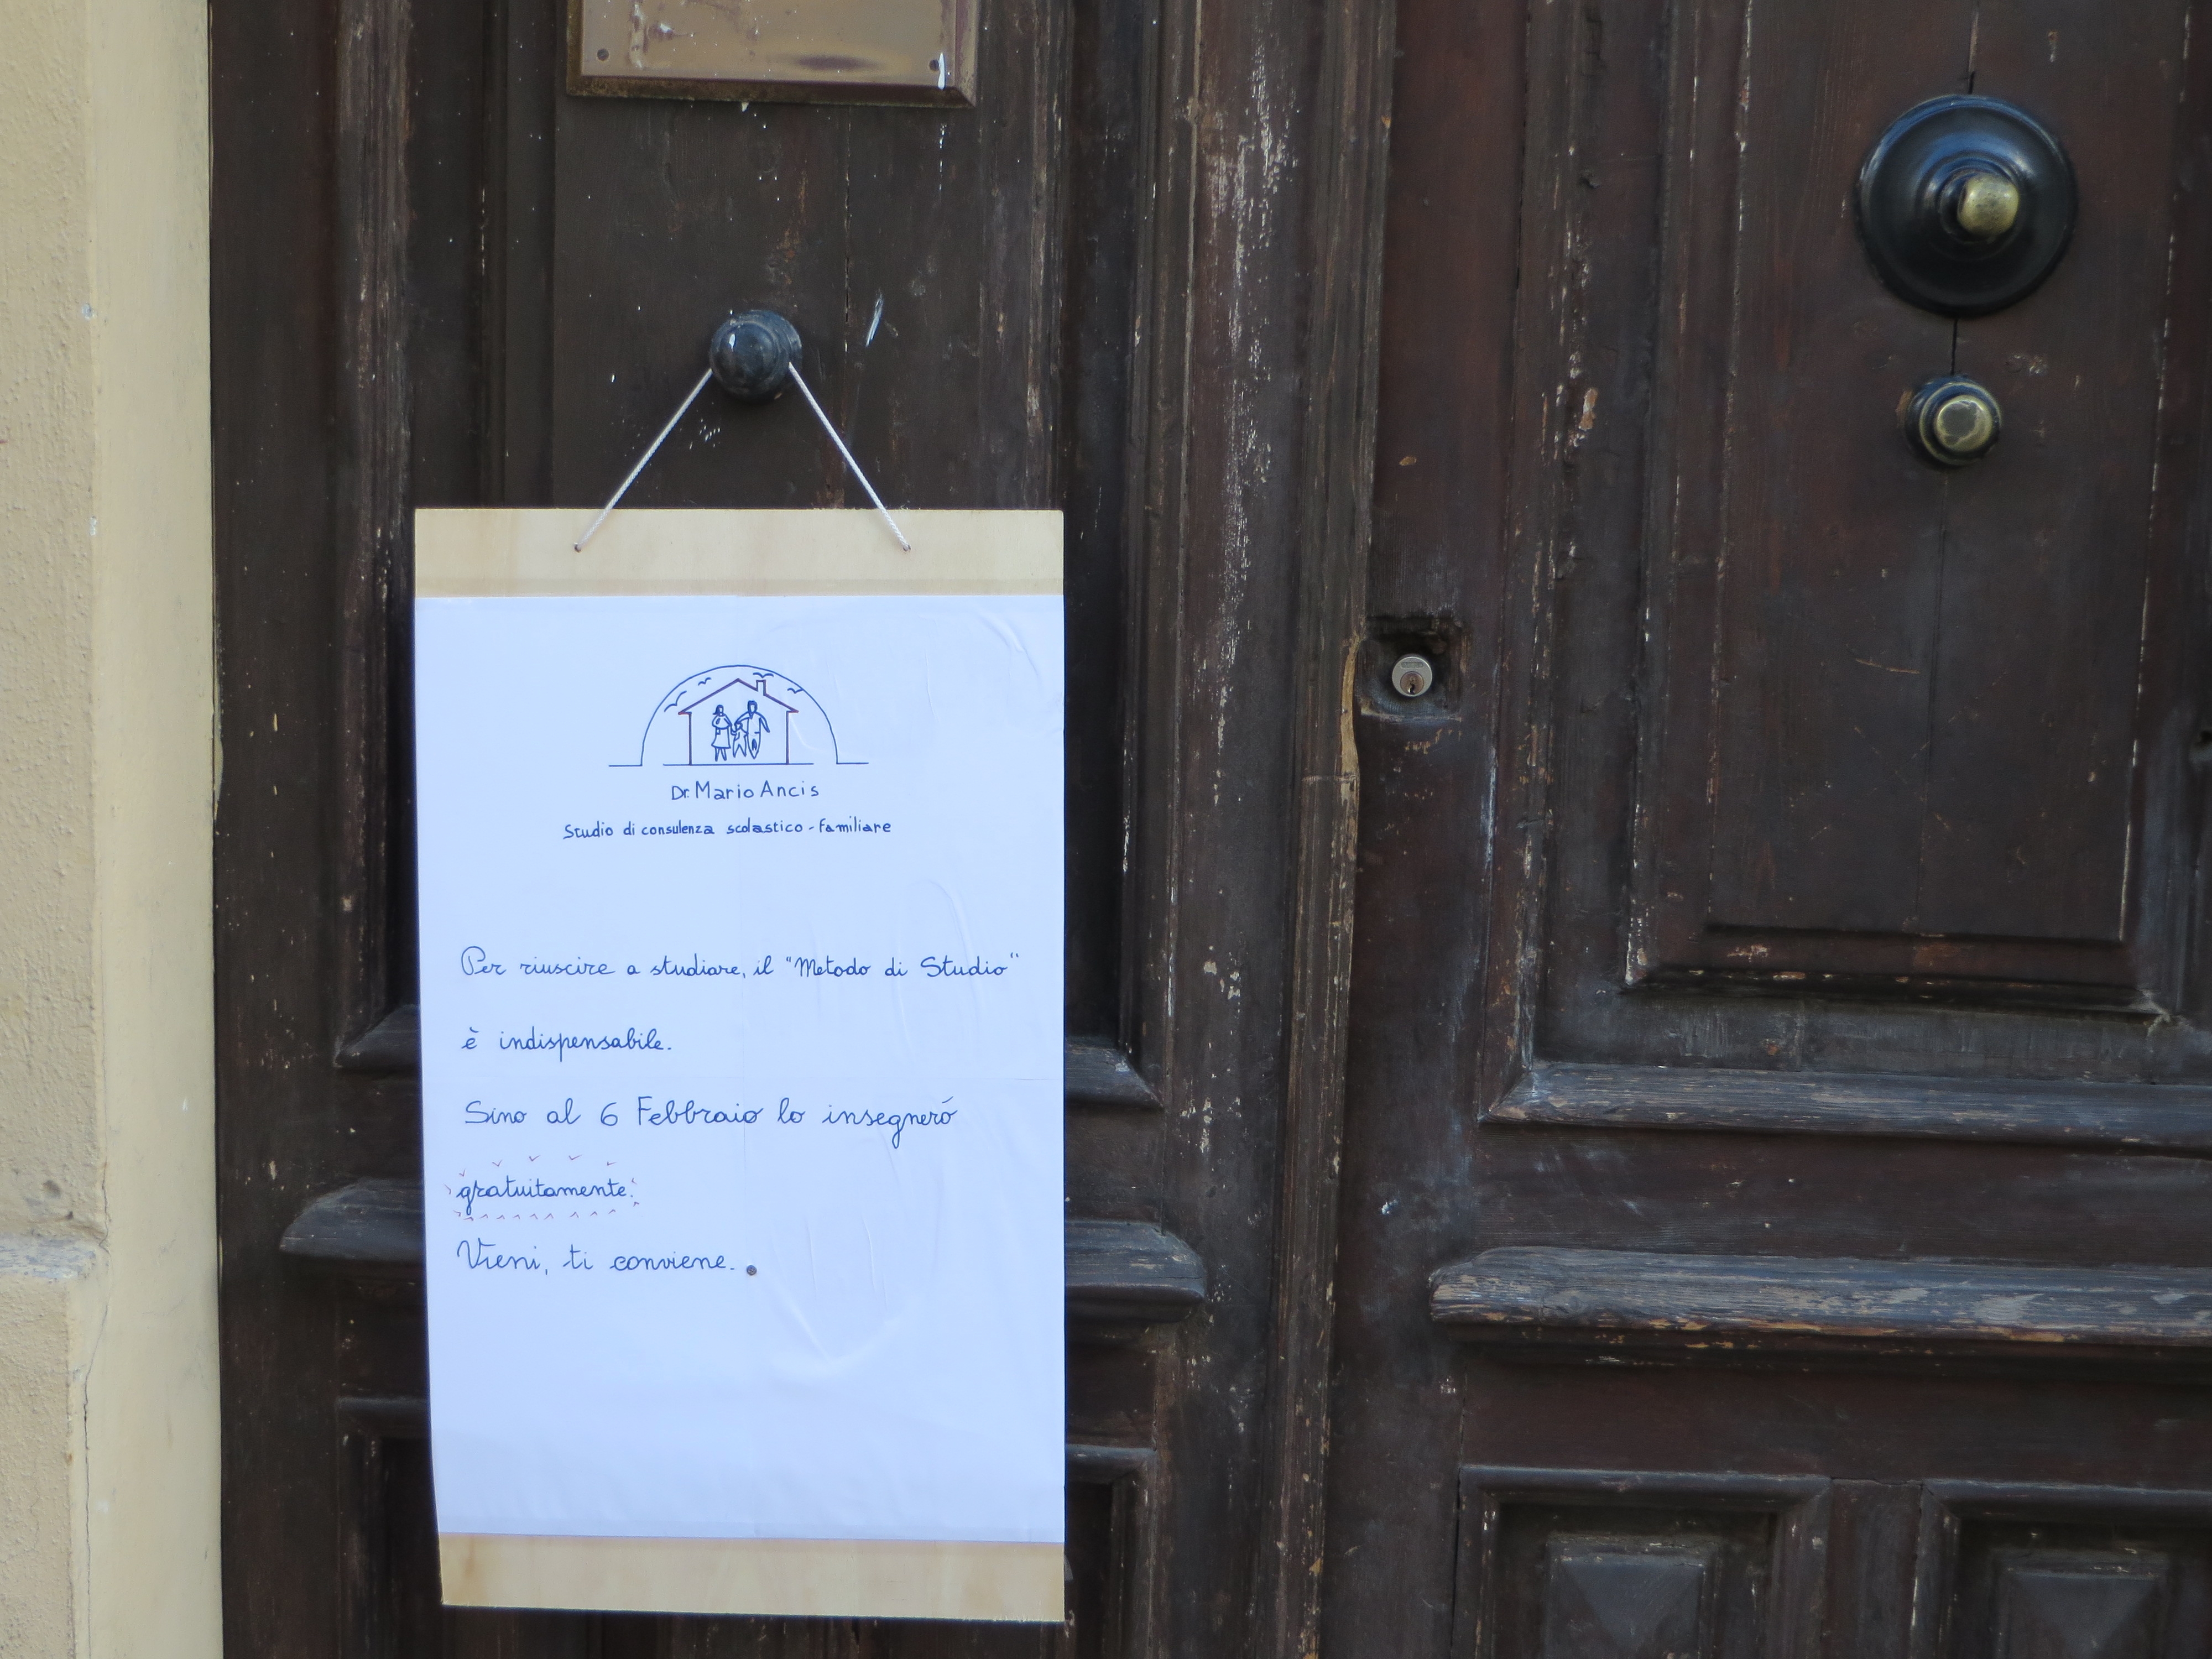 Dr. Mario Ancis
Studio di consulenza scolastico-familiare
Per riuscire a studiare, il "Metodo di Studio"
è indispensabile.
Sino al 6 Febbraio lo insegneró
gratuitamente.
Vieni, ti conviene.